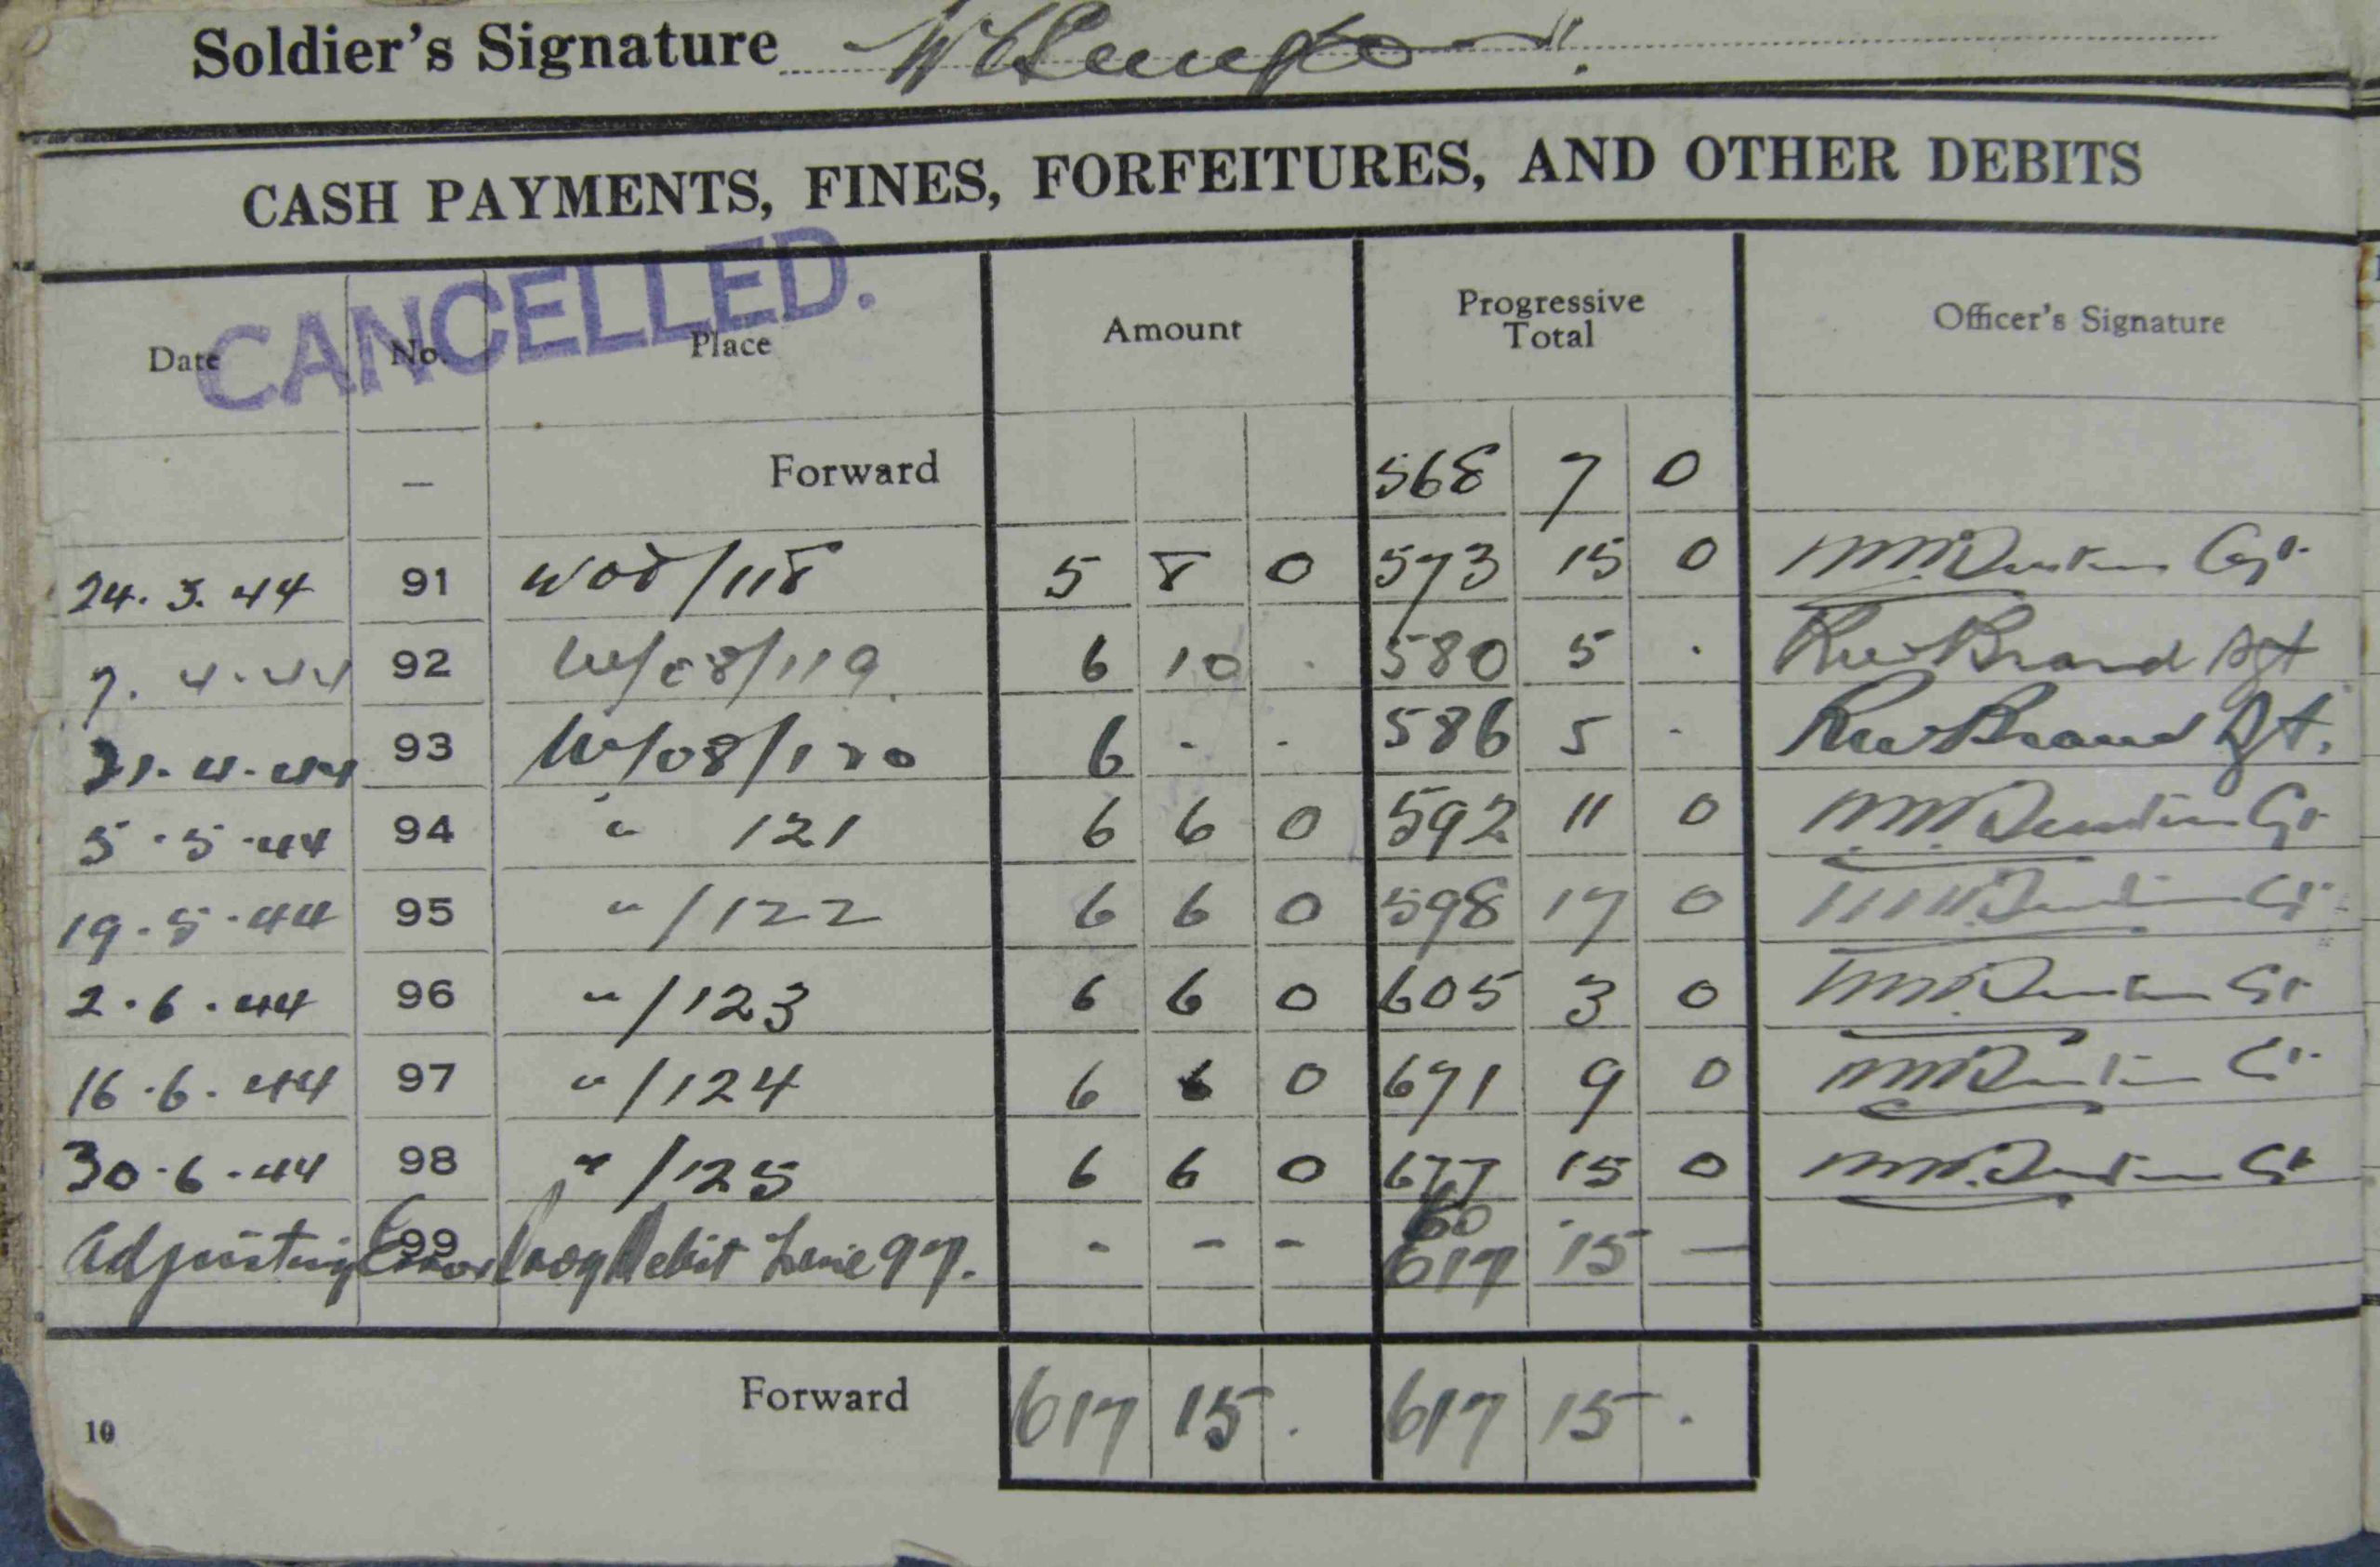 Soldier's Signature
CASH PAYMENTS, FINES, FORFEITURES, AND OTHER DEBITS
CANCELLED.
Date No. Place Amount Progressive Total Officer's Signature
— Forward 568 7 0
24. 3. 44 91 W08/118 5 8 0 573 15 0
7. 4. 44 92 W/08/119 6 10 . 580 5 . Brand Sgt
21. 4. 44 93 W/08/120 6 - - 586 5 - Brand Sgt.
5. 5. 44 94 " 121 6 6 0 592 11 0
19. 5. 44 95 " /122 6 6 0 598 17 0
2. 6. 44 96 " /123 6 6 0 605 3 0
16. 6. 44 97 " /124 6 6 0 671 9 0
30. 6. 44 98 " /125 6 6 0 677 15 0
60
Adjusting Error 99 Debit Line 97. - - - 617 15 —
Forward 617 15 . 617 15 .
10